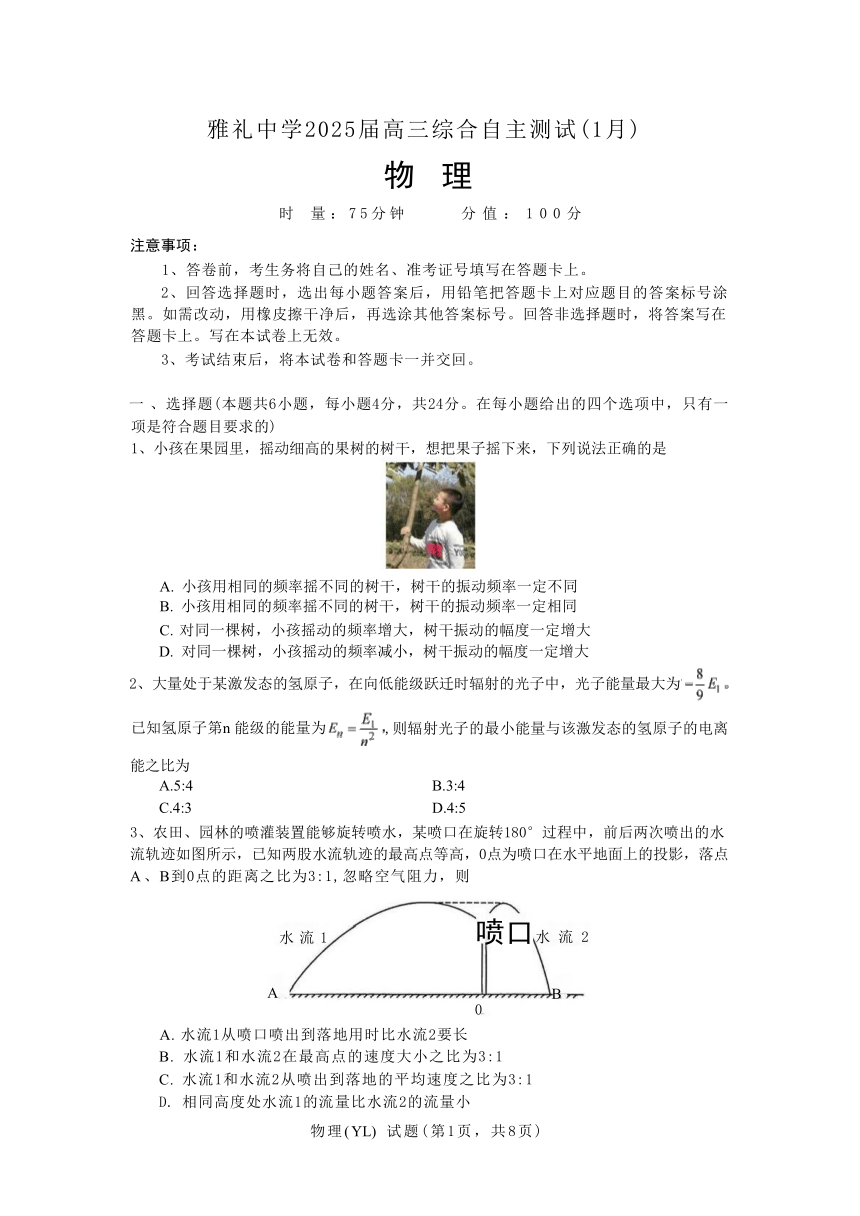 雅礼中学2025届高三综合自主测试(1月)
物 理
时 量:75分钟 分值:100分
注意事项:
1、答卷前,考生务将自己的姓名、准考证号填写在答题卡上。
2、回答选择题时,选出每小题答案后,用铅笔把答题卡上对应题目的答案标号涂
黑。如需改动,用橡皮擦干净后,再选涂其他答案标号。回答非选择题时,将答案写在
答题卡上。写在本试卷上无效。
3、考试结束后,将本试卷和答题卡一并交回。
一 、选择题(本题共6小题,每小题4分,共24分。在每小题给出的四个选项中,只有一
项是符合题目要求的)
1、小孩在果园里,摇动细高的果树的树干,想把果子摇下来,下列说法正确的是
A. 小孩用相同的频率摇不同的树干,树干的振动频率一定不同
B. 小孩用相同的频率摇不同的树干,树干的振动频率一定相同
C. 对同一棵树,小孩摇动的频率增大,树干振动的幅度一定增大
D. 对同一棵树,小孩摇动的频率减小,树干振动的幅度一定增大
2、大量处于某激发态的氢原子,在向低能级跃迁时辐射的光子中,光子能量最大为 =8/9 E₁。
已知氢原子第n 能级的能量为 Eₙ = E₁/n² ,则辐射光子的最小能量与该激发态的氢原子的电离
能之比为
A.5:4 B.3:4
C.4:3 D.4:5
3、农田、园林的喷灌装置能够旋转喷水,某喷口在旋转180°过程中,前后两次喷出的水
流轨迹如图所示,已知两股水流轨迹的最高点等高,0点为喷口在水平地面上的投影,落点
A 、B到0点的距离之比为3:1,忽略空气阻力,则
水流1 喷口 水 流 2
A B
0
A. 水流1从喷口喷出到落地用时比水流2要长
B. 水流1和水流2在最高点的速度大小之比为3:1
C. 水流1和水流2从喷出到落地的平均速度之比为3:1
D. 相同高度处水流1的流量比水流2的流量小
物理(YL) 试题(第1页,共8页)